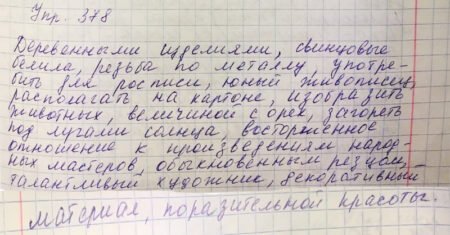 Упр. 378
Деревянными изделиями, свинцовые
белила, резьба по металлу употре-
бить для росписи, юный живописец,
располагать на картоне, изобразить
животных, величиной с орех, загореть
под лугами солнца, восторженное
отношение к произведениям народ-
ных мастеров, обыкновенным резцом,
талантливый художник, декоративный
материал, поразительной красоты.